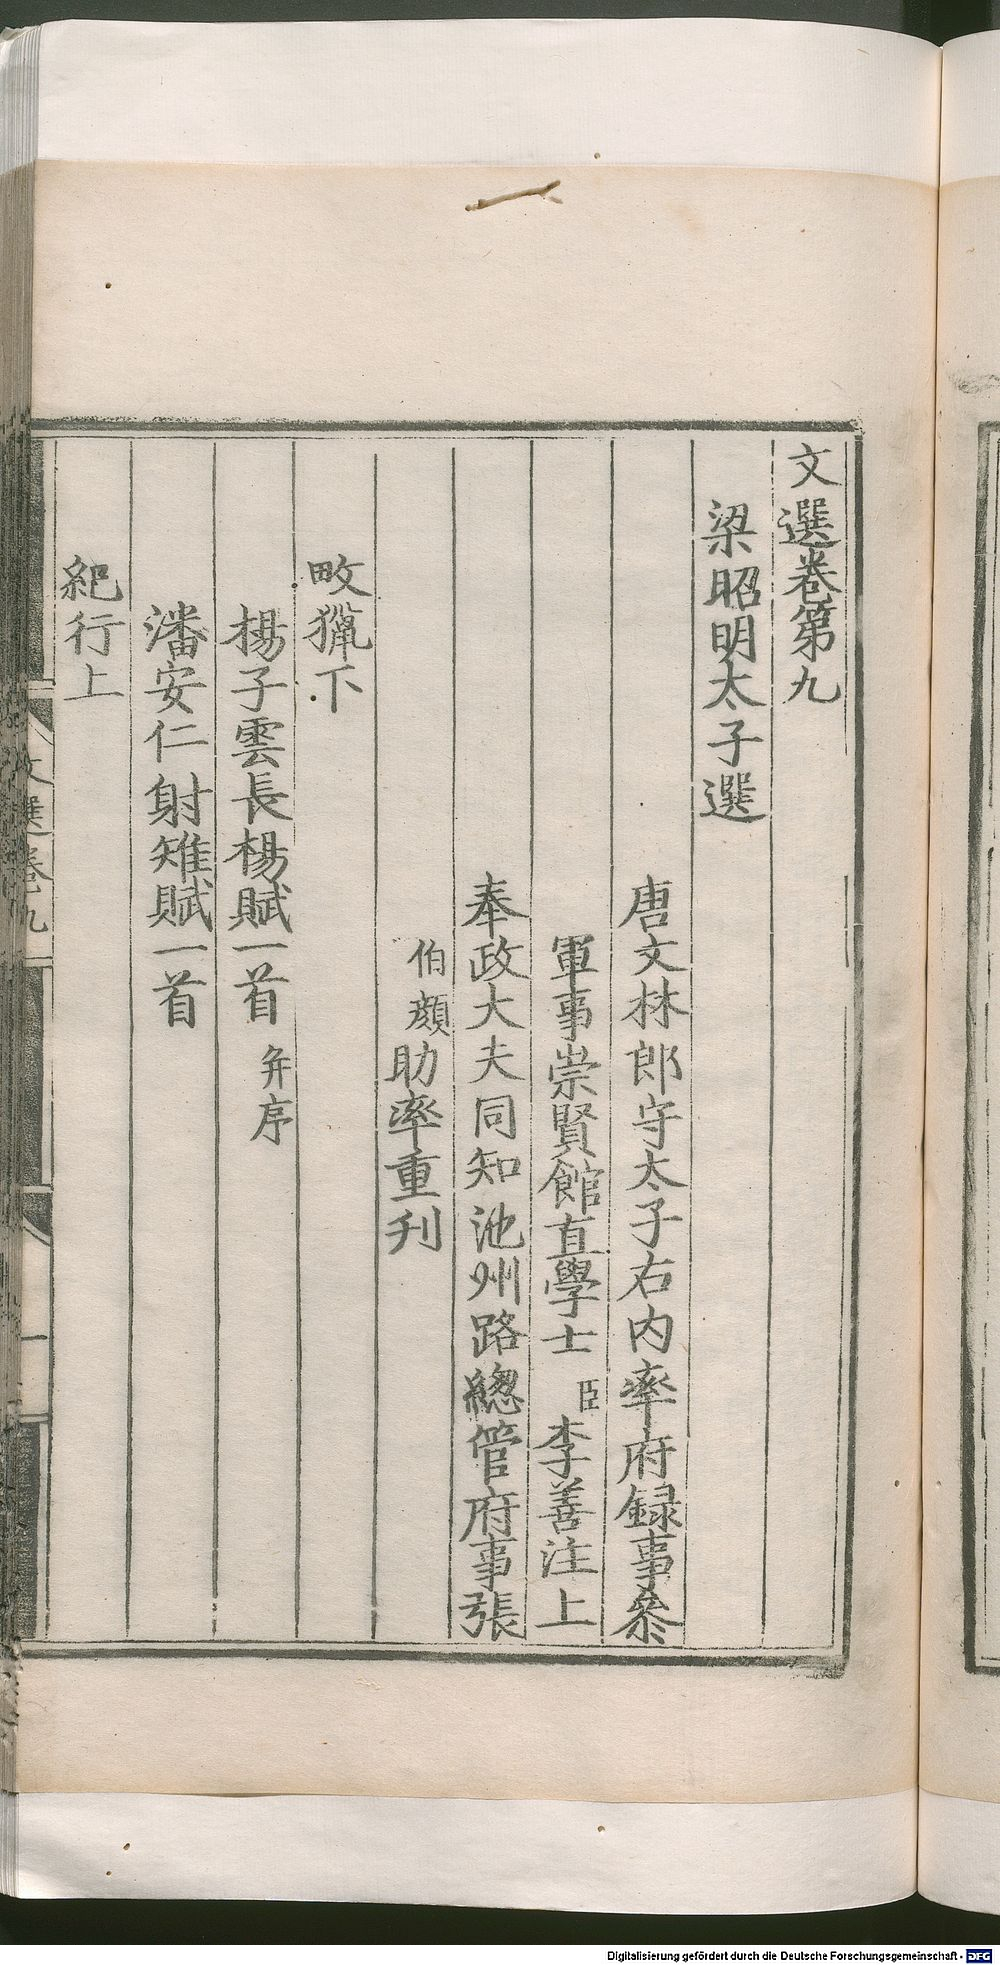 文選卷第九
梁昭明太子選
唐文林郎守太子右内率府録事參
軍事崇賢館直學士臣李善注上
奉政大夫同知池州路總管府事張
伯顔助率重刋
畋獵下
楊子雲長楊賦一首 并序
潘安仁射雉賦一首
紀行上
文選卷九
一
Digitalisierung gefördert durch die Deutsche Forschungsgemeinschaft - DFG